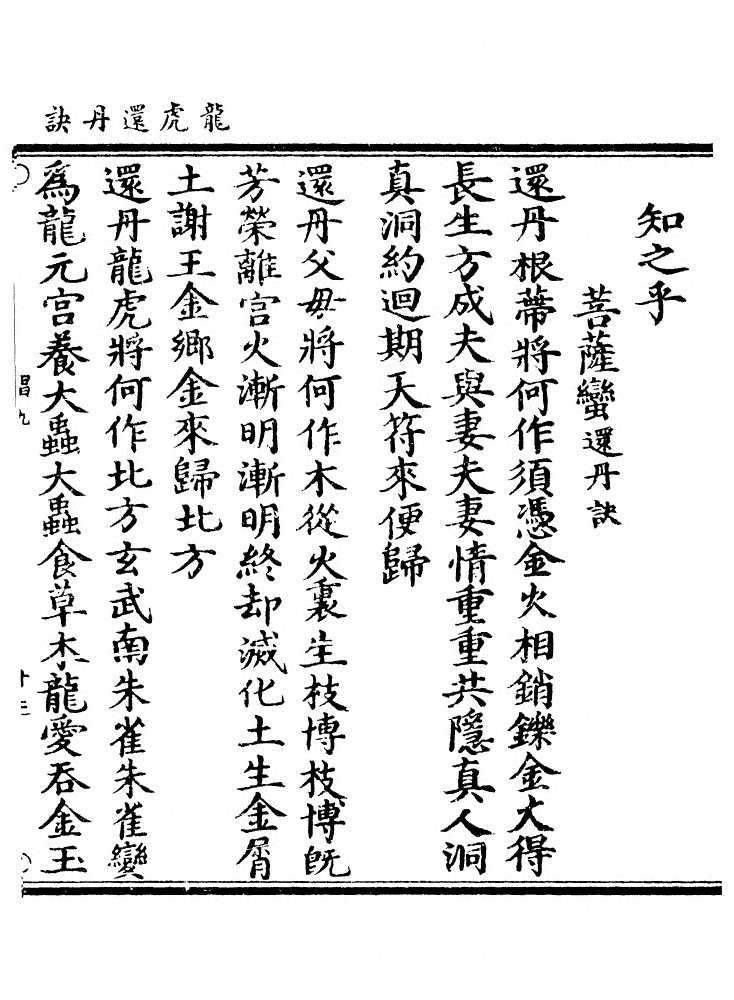 龍虎還丹訣
知之乎
菩薩蠻還丹訣
還丹根蔕將何作須憑金火相銷鑠金大得
長生方成夫與妻夫妻情重重共隱真人洞
真洞約迴期天符來便歸
還丹父毋將何作木從火裏生枝博枝博旣
芳榮離宫火漸明漸明終却滅化土生金屑
土謝王金鄉金來歸北方
還丹龍虎將何作北方玄武南朱雀朱雀變
爲龍元宫養大蟲大蟲食草木龍愛吞金玉